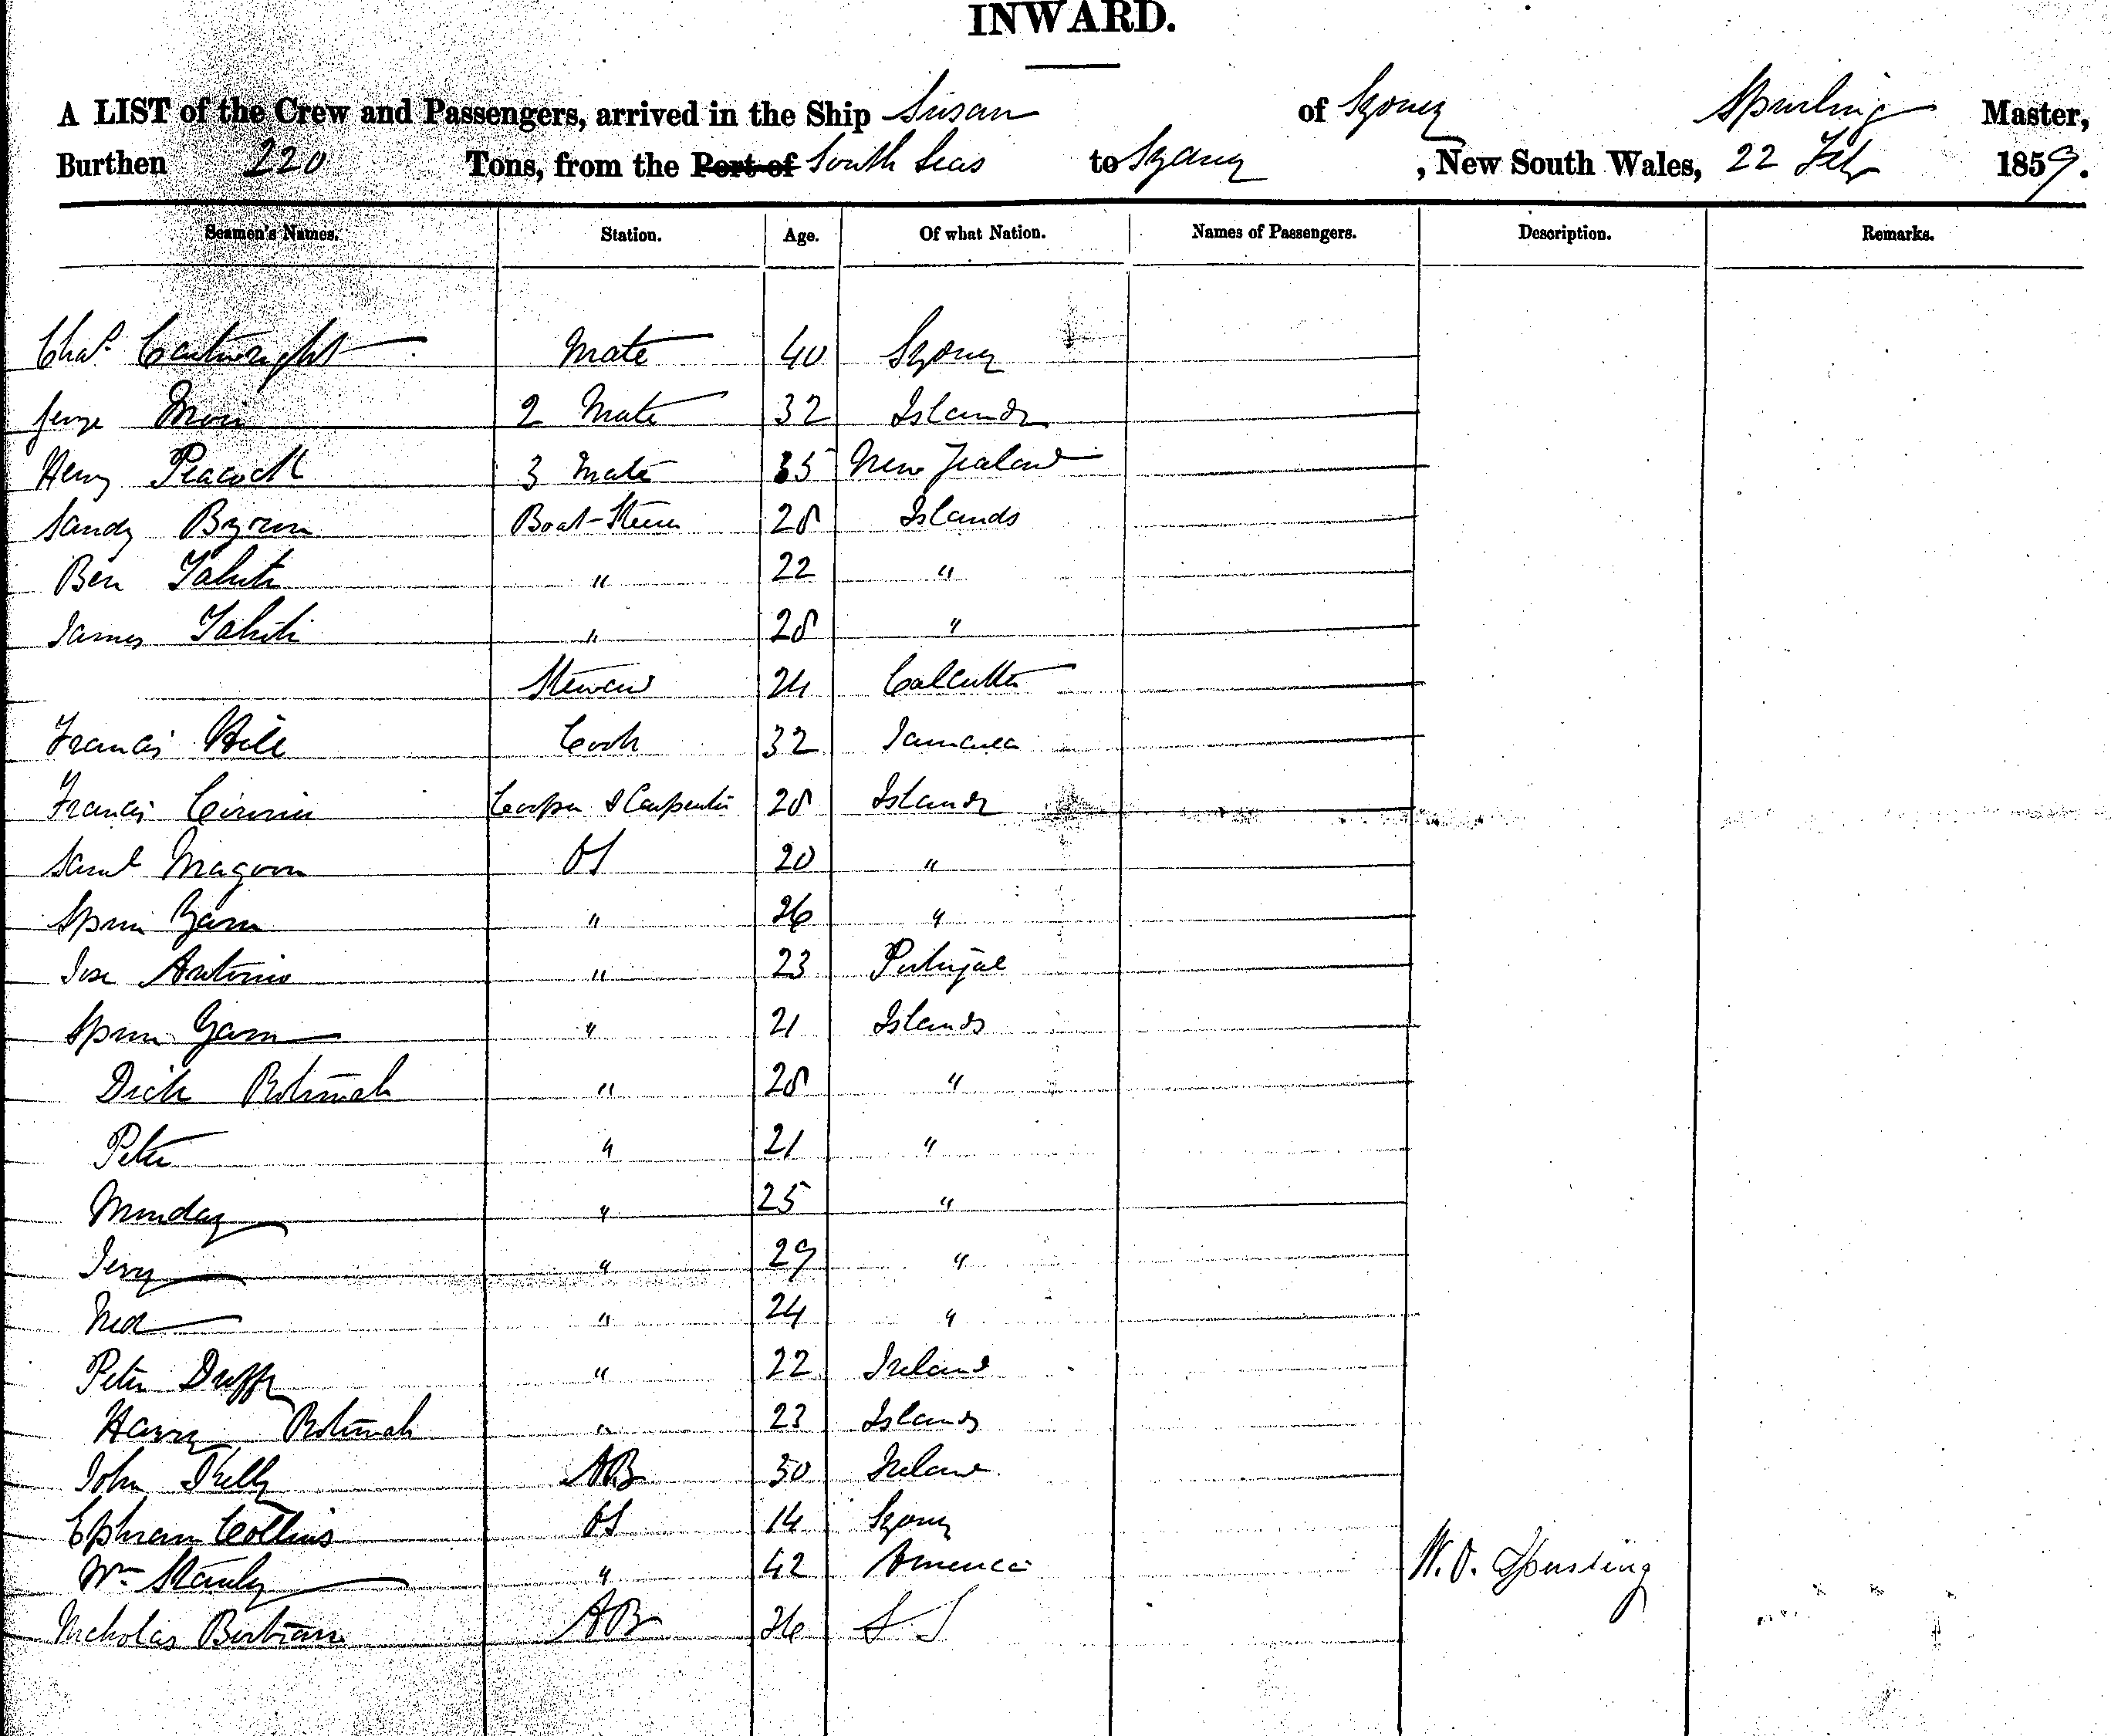 INWARD.
A LIST of the Crew and Passengers, arrived in the Ship Susan of Sydney Spurling Master,
Burthen 220 Tons, from the Port of South Seas to Sydney, New South Wales, 22 Feby 1859.
Seamen's Names. Station. Age. Of what Nation. Names of Passengers. Description. Remarks.
Chas. Cartwright Mate 40 Sydney
George 2 Mate 32 Islands
Henry Peacock 3 Mate 35 New Zealand
Sandy Byron Boat-Steerer 28 Islands
Ben Tahiti " 22 "
James Tahiti " 28 "
Steward 24 Calcutta
Francis Hill Cook 32 Jamaica
Francis Cooper & Carpenter 28 Islands
Saml Magoon OS 20 "
Spun Yarn " 26 "
Jose Antonio " 23 Portugal
Spun Yarn " 21 Islands
Dick Rotumah " 28 "
Peter " 21 "
Munday " 25 "
Jerry " 29 "
Ned " 24 "
Peter Duffy " 22 Ireland
Harry Rotumah " 23 Islands
John Kelly AB 50 Ireland
Ephram Collins OS 14 Sydney
Wm Stanly " 42 America
Nicholas AB 26
W. O. Spurling